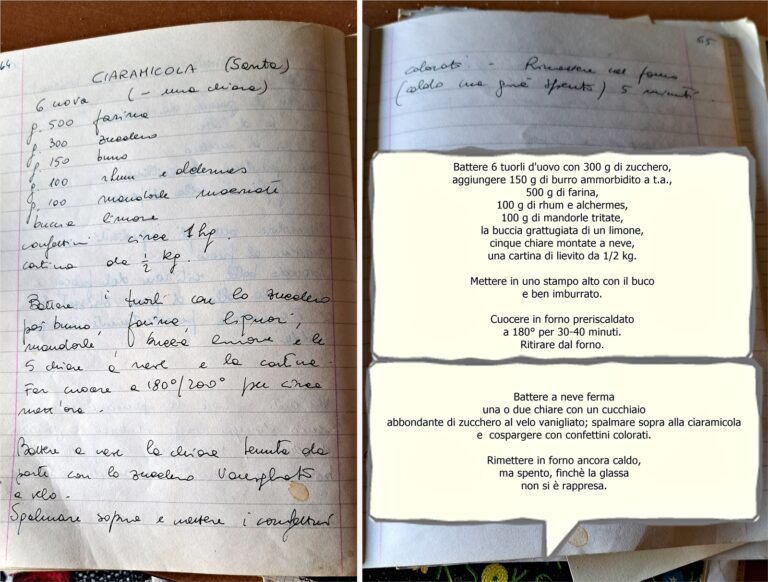 64
CIARAMICOLA (Santa)
6 uova (- una chiara)
g. 500 farina
g. 300 zucchero
g. 150 burro
g. 100 rhum e alchermes
g. 100 mandorle macinate
buccia limone
confettini circa 1 hg.
cartina da 1/2 kg.
Battere i tuorli con lo zucchero
poi burro, farina, liquori,
mandorle, buccia limone e le
5 chiare a neve e la cartina.
Far cuocere a 180°/200° per circa
mezz'ora.
Battere a neve la chiara tenuta da
parte con lo zucchero vanigliato
a velo.
Spalmare sopra e mettere i confettini
65
colorati - Rimettere nel forno
(caldo ma già spento) 5 minuti.
Battere 6 tuorli d'uovo con 300 g di zucchero,
aggiungere 150 g di burro ammorbidito a t.a.,
500 g di farina,
100 g di rhum e alchermes,
100 g di mandorle tritate,
la buccia grattugiata di un limone,
cinque chiare montate a neve,
una cartina di lievito da 1/2 kg.
Mettere in uno stampo alto con il buco
e ben imburrato.
Cuocere in forno preriscaldato
a 180° per 30-40 minuti.
Ritirare dal forno.
Battere a neve ferma
una o due chiare con un cucchiaio
abbondante di zucchero al velo vanigliato; spalmare sopra alla ciaramicola
e cospargere con confettini colorati.
Rimettere in forno ancora caldo,
ma spento, finchè la glassa
non si è rappresa.